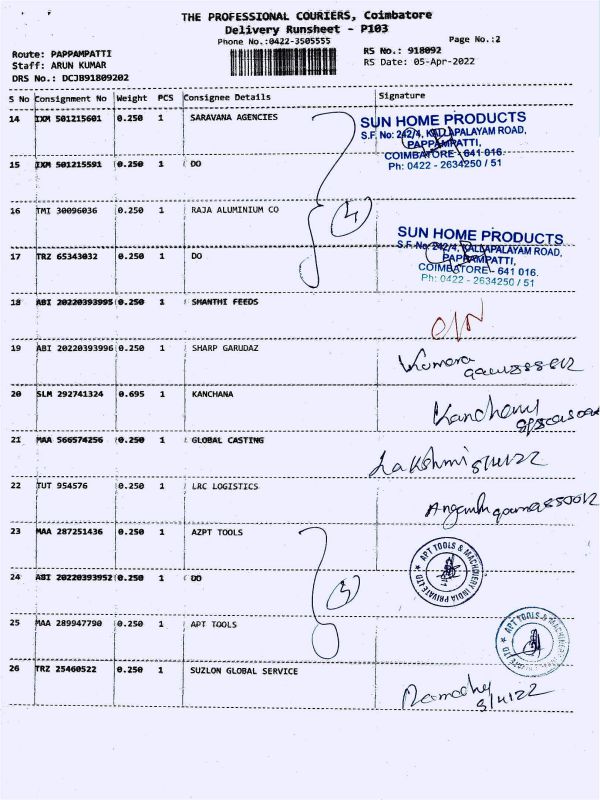 THE PROFESSIONAL COURIERS, Coimbatore
Delivery Runsheet - P103
Phone No.:0422-3505555
Page No.:2
Route: PAPPAMPATTI
Staff: ARUN KUMAR
DRS No.: DCJB91809202
RS No.: 918092
RS Date: 05-Apr-2022
S No Consignment No Weight PCS Consignee Details Signature
14 IXM 501215601 0.250 1 SARAVANA AGENCIES
SUN HOME PRODUCTS
S.F. No: 242/4, KALLAPALAYAM ROAD,
PAPPAMPATTI,
COIMBATORE - 641 016.
Ph: 0422 - 2634250 / 51
15 IXM 501215591 0.250 1 DO
16 TMI 30096036 0.250 1 RAJA ALUMINIUM CO
4
17 TRZ 65343032 0.250 1 DO
SUN HOME PRODUCTS
S.F. No: 242/4, KALLAPALAYAM ROAD,
PAPPAMPATTI,
COIMBATORE - 641 016.
Ph: 0422 - 2634250 / 51
18 ABI 20220393995 0.250 1 SHANTHI FEEDS
19 ABI 20220393996 0.250 1 SHARP GARUDAZ
Kumara
20 SLM 292741324 0.695 1 KANCHANA
21 MAA 566574256 0.250 1 GLOBAL CASTING
Lakshmi 5/4/22
22 TUT 954576 0.250 1 LRC LOGISTICS
23 MAA 287251436 0.250 1 AZPT TOOLS
APT TOOLS & MACHINERY INDIA PRIVATE LTD
24 ABI 20220393952 0.250 1 DO
25 MAA 289947790 0.250 1 APT TOOLS
APT TOOLS & MACHINERY
26 TRZ 25460522 0.250 1 SUZLON GLOBAL SERVICE
5/4/22